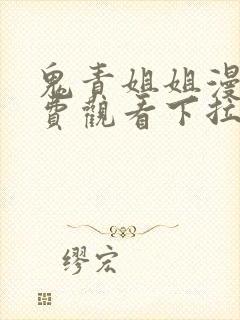 鬼青姐姐漫
費觀看下拉
缪宏